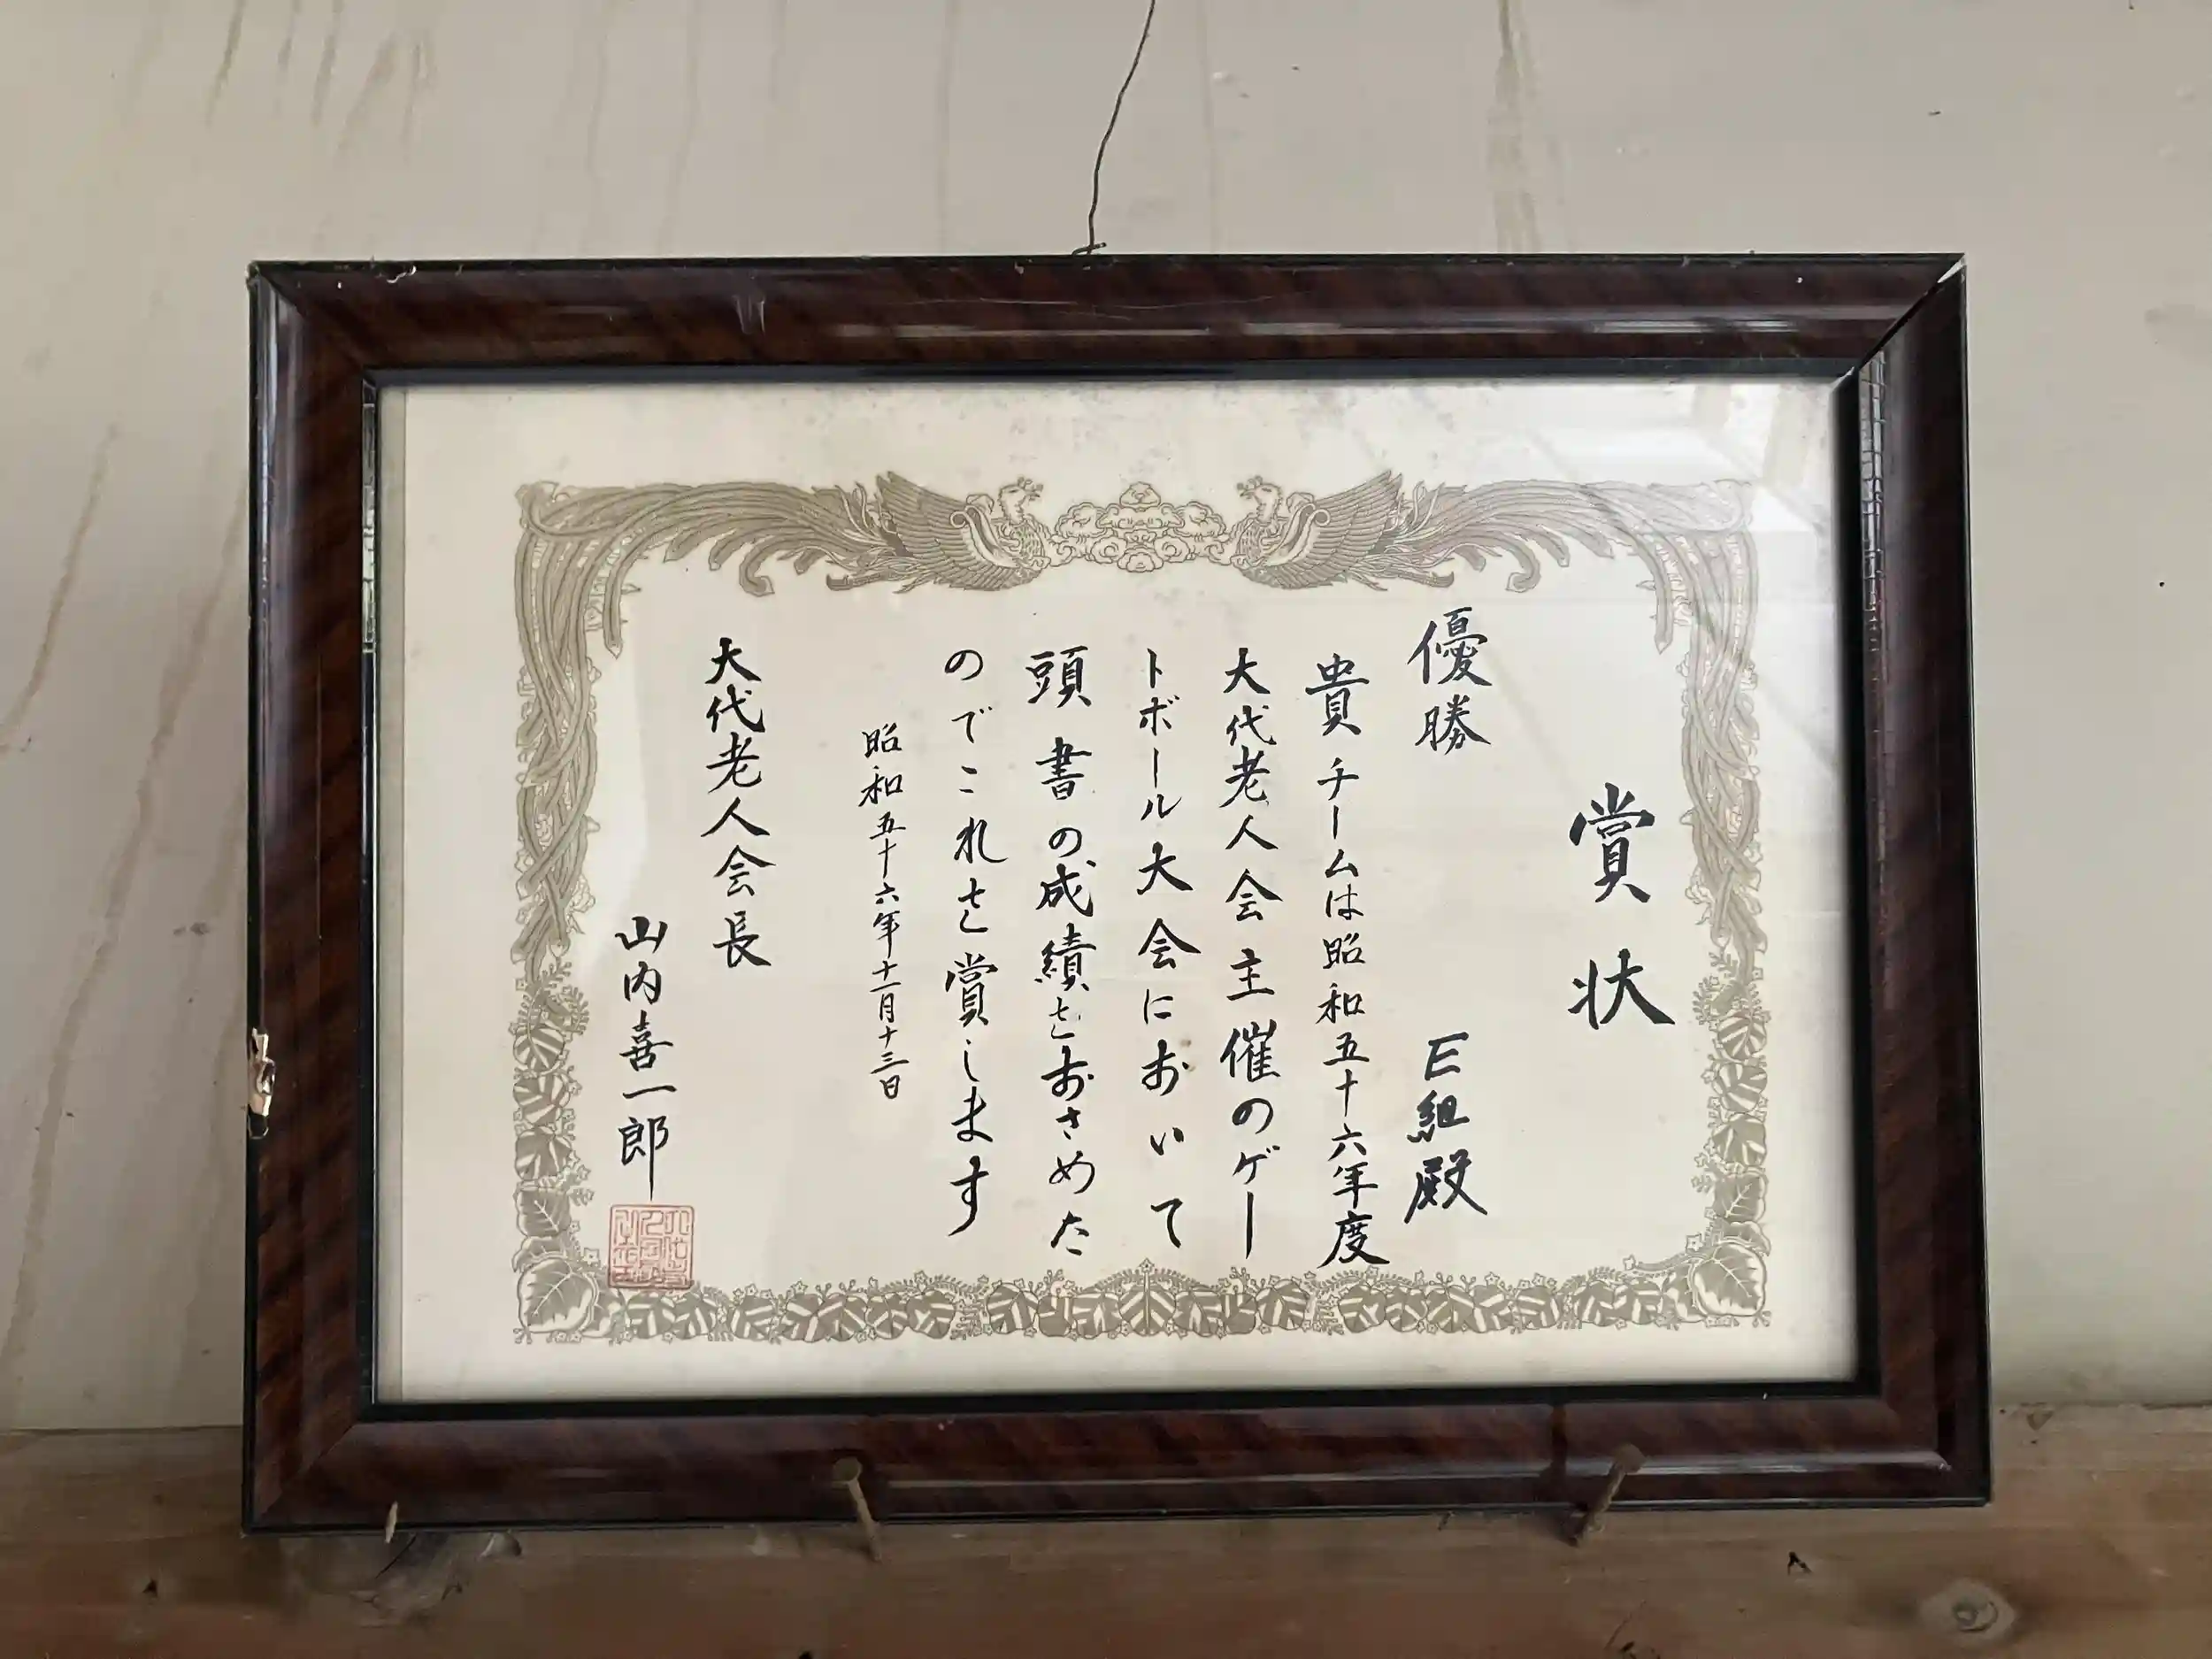 賞状
優勝 E組殿
貴チームは昭和五十六年度
大代老人会主催のゲー
トボール大会において
頭書の成績をおさめた
のでこれを賞します
昭和五十六年十一月十三日
大代老人会長
山内喜一郎